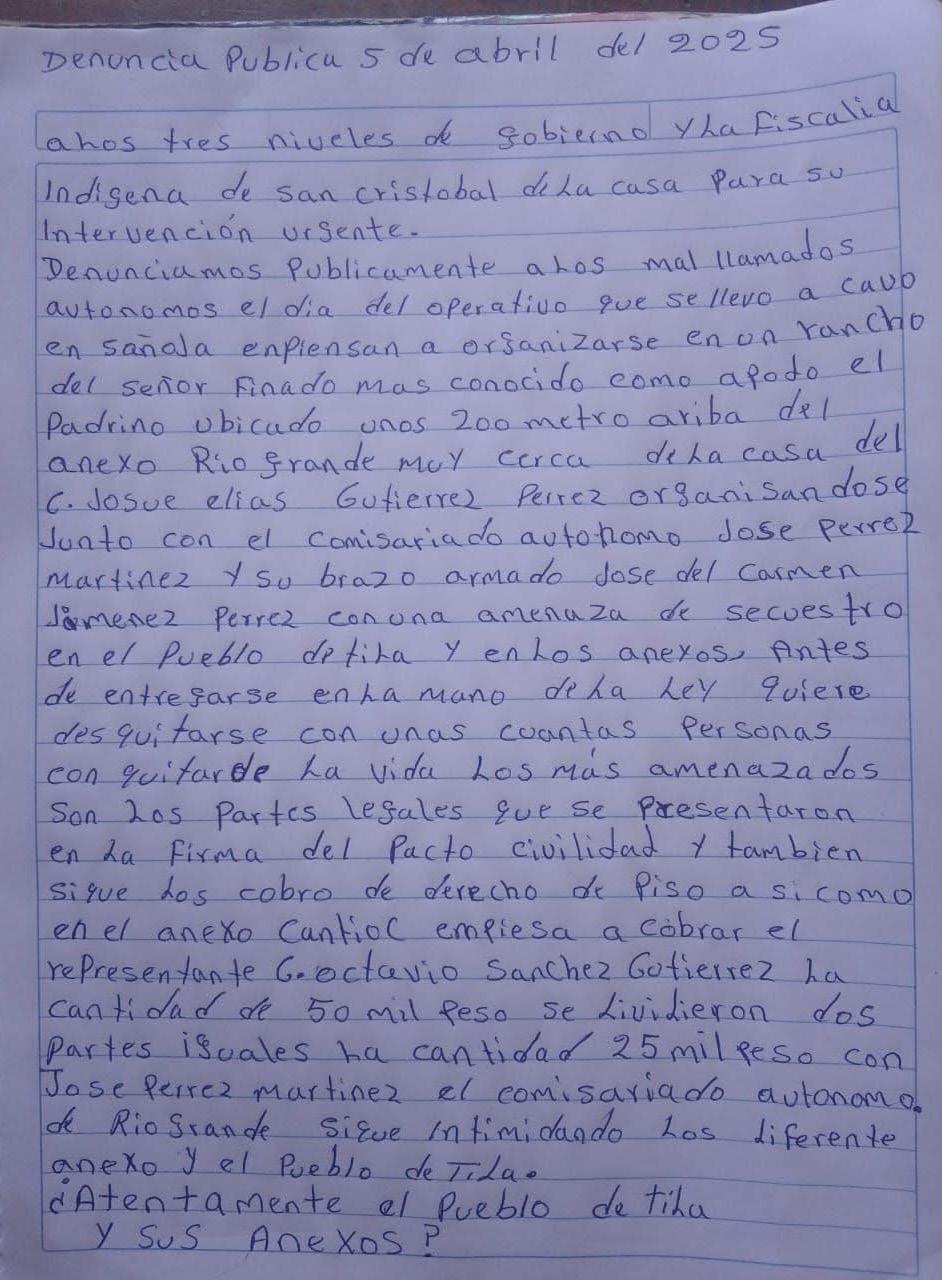 Denuncia Publica 5 de abril del 2025
ahos tres niveles de gobierno y La Fiscalia
Indigena de san cristobal de La casa Para su
Intervención urgente.
Denunciamos Publicamente a Los mal llamados
autonomos el dia del operativo que se llevo a cavo
en sañola enpiensan a organizarse en un rancho
del señor Finado mas conocido como apodo el
Padrino ubicado unos 200 metro ariba del
anexo Rio grande muy cerca de La casa del
C. Josue elias Gutierrez Perrez organisandose
Junto con el comisariado autonomo Jose Perrez
Martinez y su brazo armado Jose del Carmen
Jimenez Perrez con una amenaza de secuestro
en el Pueblo de tiLa y en Los anexos. Antes
de entregarse en La mano de La Ley quiere
desquitarse con unas cuantas Personas
con quitarde La vida Los más amenazados
Son Los Partes legales que se Presentaron
en La Firma del Pacto civilidad y tambien
sigue Los cobro de derecho de Piso a si como
en el anexo Cantioc empiesa a cobrar el
representante G. octavio Sanchez Gutierrez La
cantidad de 50 mil Peso se dividieron dos
Partes iguales La cantidad 25 mil peso con
Jose Perrez martinez el comisariado autonomo.
de Rio grande sigue Intimidando Los diferente
anexo y el Pueblo de Tila.
¿Atentamente el Pueblo de tiLa
y sus Anexos?